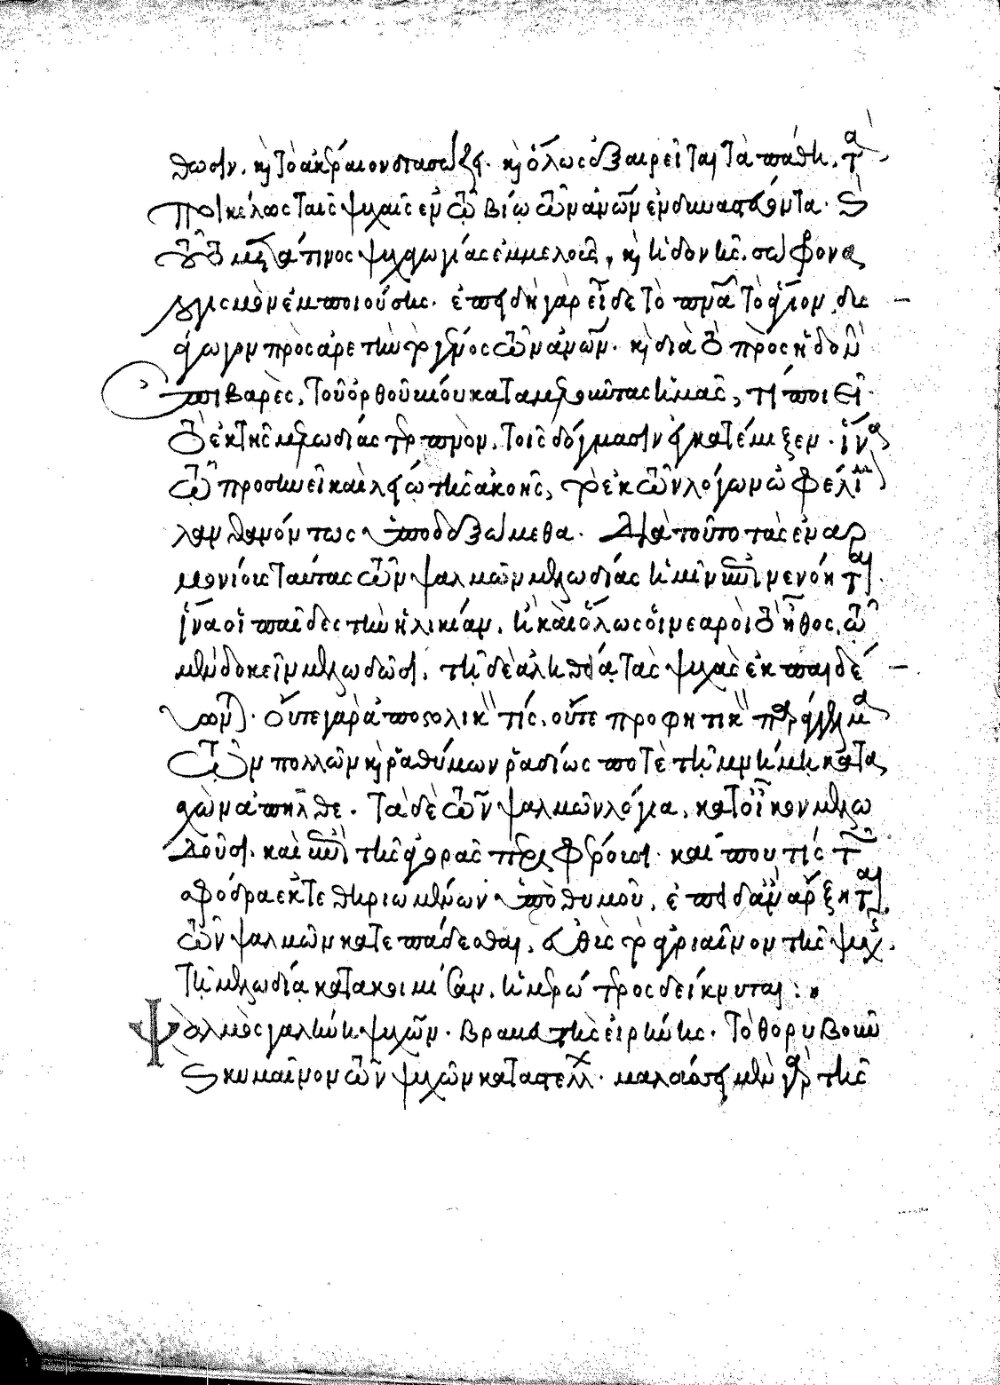 θωσιν. καὶ τὸ ἀκέραιον διασώζει. καὶ ὅλως ἐξαιρεῖται τὰ πάθη, τὰ
ποικίλως ταῖς ψυχαῖς ἐν τῷ βίῳ τῶν ἀνων ἐνδυναστεύοντα.
τοῦτο μετά τινος ψυχαγωγίας ἐμμελοῦς, καὶ ἡδονῆς. σώφρονα
λογισμὸν ἐμποιούσης. ἐπειδὴ γὰρ εἶδε τὸ πνα τὸ ἅγιον, δυσ
άγωγον πρὸς ἀρετὴν τὸ γένος τῶν ἀνων. καὶ διὰ τὸ πρὸς ἡδονὴν
ἐπιρρεπὲς, τοῦ ὀρθοῦ βίου καταμελοῦντας ἡμᾶς, τί ποιεῖ.
τὸ ἐκ τῆς μελωδίας τερπνὸν, τοῖς δόγμασιν ἐγκατέμιξεν. ἵνα
τῷ προσηνεῖ καὶ λείῳ τῆς ἀκοῆς, τὸ ἐκ τῶν λόγων ὠφέλιμον
λανθανόντως ὑποδεξώμεθα. Διὰ τοῦτο τὰς ἐναρ
μονίους ταύτας τῶν ψαλμῶν μελωδίας ἡμῖν ἐπινενόηται.
ἵνα οἱ παῖδες τὴν ἡλικίαν, ἢ καὶ ὅλως οἱ νεαροὶ τὸ ἦθος, τῷ
μὲν δοκεῖν μελωδῶσι, τῇ δὲ ἀληθείᾳ τὰς ψυχὰς ἐκπαιδεύ
ωνται. Οὔτε γὰρ ἀποστολικήν τίς, οὔτε προφητικὴν παραγγελίαν
τῶν πολλῶν καὶ ῥαθύμων ῥαδίως ποτὲ τῇ μνήμῃ κατα
σχὼν ἀπῆλθε. Τὰ δὲ τῶν ψαλμῶν λόγια, κατοῖκον μελω
δοῦσι. καὶ ἐπὶ τῆς ἀγορᾶς περιφέρουσι. καί που τίς τῶν
σφόδρα ἐκτεθηριωμένων ὑπὸ θυμοῦ, ἐπειδὰν ἄρξηται
τῶν ψαλμῶν κατεπάδεσθαι, εὐθὺς τὸ ἀγριαῖνον τῆς ψυχῆς.
τῇ μελωδίᾳ κατακοιμίσαν, ἡμερώτερος δείκνυται:
Ψαλμὸς γαλήνη ψυχῶν. βραβευτὴς εἰρήνης. Τὸ θορυβοῦν
καὶ κυμαῖνον τῶν ψυχῶν καταστέλλει. μαλάσσει μὲν γὰρ τῆς